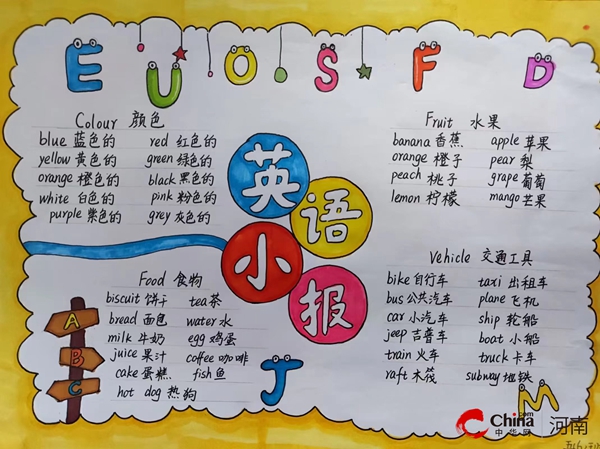 E U O S F D
Colour 颜色
blue 蓝色的 red 红色的
yellow 黄色的 green 绿色的
orange 橙色的 black 黑色的
white 白色的 pink 粉色的
purple 紫色的 grey 灰色的
Fruit 水果
banana 香蕉 apple 苹果
orange 橙子 pear 梨
peach 桃子 grape 葡萄
lemon 柠檬 mango 芒果
英
语
小
报
Food 食物
biscuit 饼干 tea 茶
bread 面包 water 水
milk 牛奶 egg 鸡蛋
juice 果汁 coffee 咖啡
cake 蛋糕 fish 鱼
hot dog 热狗
A
B
C
Vehicle 交通工具
bike 自行车 taxi 出租车
bus 公共汽车 plane 飞机
car 小汽车 ship 轮船
jeep 吉普车 boat 小船
train 火车 truck 卡车
raft 木筏 subway 地铁
J
M
China.com
中华网
河南